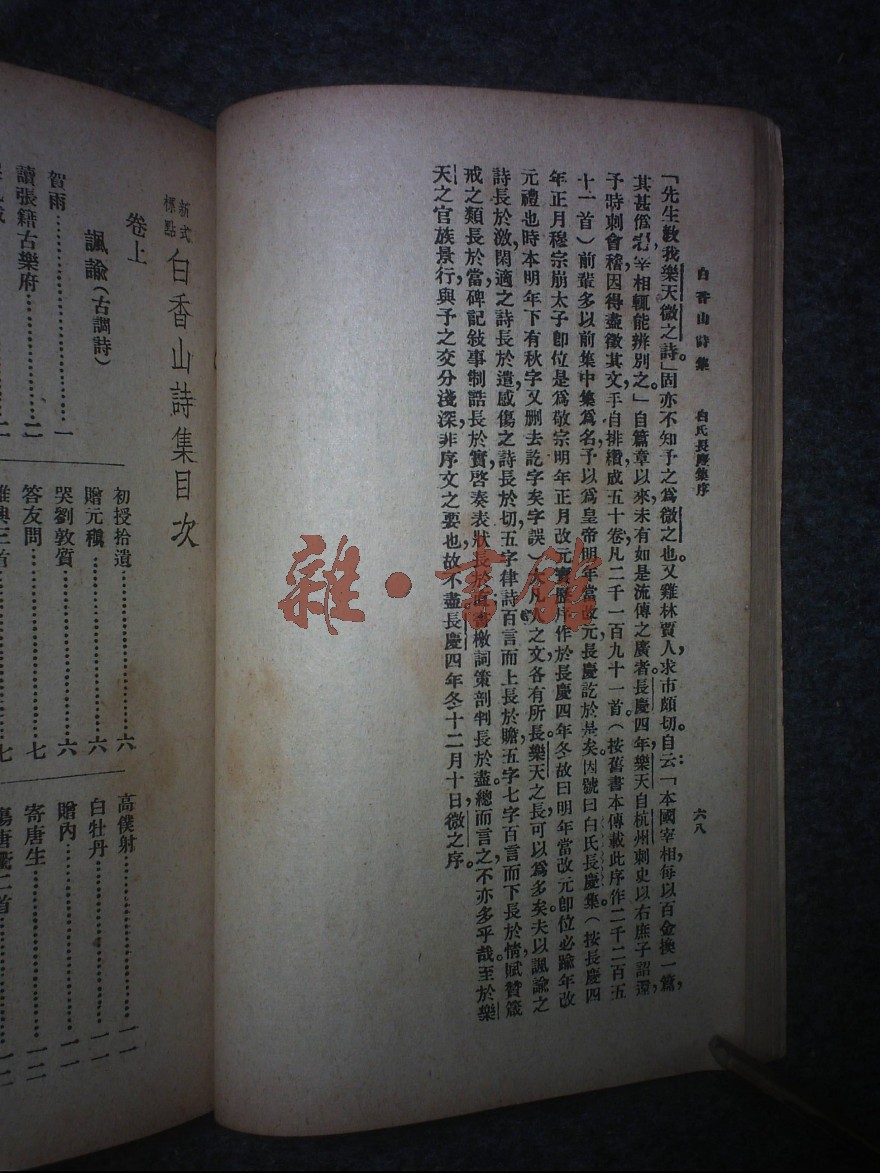 白香山詩集　白氏長慶集序　六八
「先生教我樂天微之詩。」固亦不知予之爲微之也。又雞林賈人求市頗切。自云：「本國宰相，每以百金換一篇，
其甚僞者，宰相輒能辨別之。」自篇章以來，未有如是流傳之廣者。長慶四年，樂天自杭州刺史以右庶子詔還，
予時刺會稽，因得盡徵其文，手自排纘，成五十卷，凡二千一百九十一首。（按舊書本傳載此序作二千二百五
十一首）前輩多以前集中集爲名，予以爲皇帝明年當改元，長慶訖於是矣，因號曰白氏長慶集。（按長慶四
年正月穆宗崩太子卽位是爲敬宗明年正月改元寶曆序作於長慶四年冬故曰明年當改元卽位必踰年改
元禮也時本明年下有秋字又删去訖字矣字誤）大凡人之文各有所長，樂天之長可以爲多矣。夫以諷諭之
詩長於激，閑適之詩長於遣，感傷之詩長於切，五字律詩百言而上長於贍，五字七字百言而下長於情，賦贊箴
戒之類長於當，碑記敍事制誥長於實，啓奏表狀長於直，書檄詞策剖判長於盡。總而言之，不亦多乎哉。至於樂
天之官族景行，與予之交分淺深，非序文之要也，故不盡。長慶四年冬十二月十日，微之序。
雜·書館
新式標點　白香山詩集目次
卷上
諷諭（古調詩）
賀雨……一
讀張籍古樂府……二
初授拾遺……六
贈元稹……六
哭劉敦質……七
答友問……七
雜興三首……七
高僕射……一一
白牡丹……一一
贈內……一一
寄唐生……一二
傷唐衢二首……一二